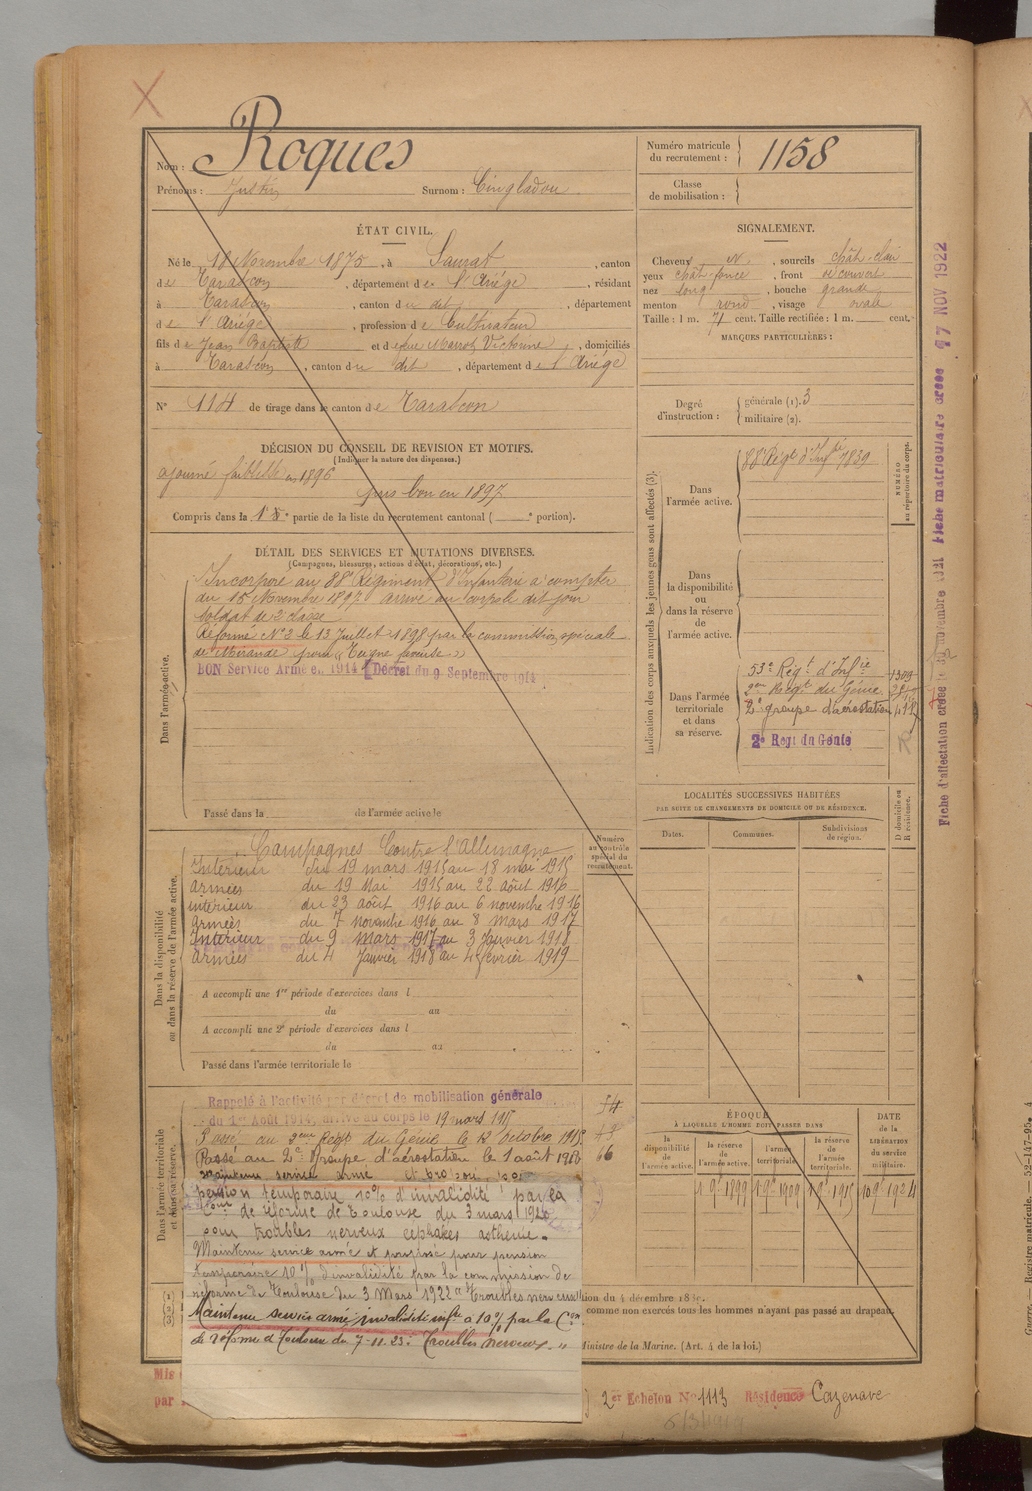 Roques
Nom :
Prénoms : Justin Surnom : Cingladou
Numéro matricule du recrutement : 1158
Classe de mobilisation :
ÉTAT CIVIL.
Né le 18 Novembre 1875, à Saurat, canton
de Tarascon, département de l'Ariège, résidant
à Tarascon, canton du dit, département
de l'Ariège, profession de Cultivateur
fils de Jean Baptiste et de feue Marrot Victorine, domiciliés
à Tarascon, canton du dit, département de l'Ariège
N° 114 de tirage dans le canton de Tarascon
SIGNALEMENT.
Cheveux N, sourcils chât-clair
yeux chât-foncé, front découvert
nez long, bouche grande
menton rond, visage ovale
Taille : 1 m. 71 cent. Taille rectifiée : 1 m. cent.
MARQUES PARTICULIÈRES :
Degré d'instruction : générale (1). 3
militaire (2).
DÉCISION DU CONSEIL DE REVISION ET MOTIFS.
(Indiquer la nature des dispenses.)
ajourné faiblesse en 1896
pris bon en 1897
Compris dans la 1e partie de la liste du recrutement cantonal ( e portion).
DÉTAIL DES SERVICES ET MUTATIONS DIVERSES.
(Campagnes, blessures, actions d'éclat, décorations, etc.)
Dans l'armée active.
Incorporé au 88e Régiment d'Infanterie à compter
du 15 Novembre 1897 arrivé au corps le dit jour
soldat de 2e classe
Réformé N°2 le 13 Juillet 1898 par la commission spéciale
de Mirande pour "Teigne faveuse"
BON Service Armé en 1914 (Décret du 9 Septembre 1914
Passé dans la de l'armée active le
Indication des corps auxquels les jeunes gens sont affectés (3).
NUMÉRO au répertoire du corps.
Dans l'armée active.
88e Régt d'Infie 1839
Dans la disponibilité ou dans la réserve de l'armée active.
Dans l'armée territoriale et dans sa réserve.
53e Régt d'Infie 1309
2me Régt du Génie
2e groupe d'aérostation
2e Regt du Génie
LOCALITÉS SUCCESSIVES HABITÉES
PAR SUITE DE CHANGEMENTS DE DOMICILE OU DE RÉSIDENCE.
Dates. Communes. Subdivisions de région. D domicile ou R résidence.
Dans la disponibilité ou dans la réserve de l'armée active.
Numéro au contrôle spécial du recrutement.
Campagnes Contre l'Allemagne
Intérieur du 19 mars 1915 au 18 mai 1915
armées du 19 Mai 1915 au 22 août 1916
intérieur du 23 août 1916 au 6 novembre 1916
armées du 7 novembre 1916 au 8 Mars 1917
Intérieur du 9 Mars 1917 au 3 Janvier 1918
armées du 4 Janvier 1918 au 4 février 1919
A accompli une 1re période d'exercices dans l
du au
A accompli une 2e période d'exercices dans l
du au
Passé dans l'armée territoriale le
Dans l'armée territoriale et dans sa réserve.
Rappelé à l'activité par décret de mobilisation générale
du 1er Août 1914, arrivé au corps le 19 mars 1915
Passé au 2eme Régt du Génie le 12 Octobre 1915
Passé au 2e Groupe d'aérostation le 1 août 1916
66
maintenu service armé et proposé pour
pension temporaire 10% d'invalidité par la
Con de réforme de Toulouse du 3 mars 1920
pour troubles nerveux céphalées asthénie.
Maintenu service armé et proposé pour pension
temporaire 10% d'invalidité par la commission de
réforme de Toulouse du 3 Mars 1922 "Troubles nerveux"
Maintenu service armé, invalidité infre à 10% par la Con
de réforme de Toulouse du 7-11-23. "Troubles nerveux"
ÉPOQUE
À LAQUELLE L'HOMME DOIT PASSER DANS
la disponibilité de l'armée active. la réserve de l'armée active. l'armée territoriale. la réserve de l'armée territoriale.
DATE de la LIBÉRATION du service militaire.
1 9e 1899 1 9e 1909 1 9e 1915 10 9e 1924
(1)
(2)
(3)
comme non exercés tous les hommes n'ayant pas passé au drapeau.
Ministre de la Marine. (Art. 4 de la loi.)
Mis
par
2er Echelon N° 1113 Résidence Cazenave
Fiche d'affectation créée le
Fiche matriculaire créée
17 NOV 1922